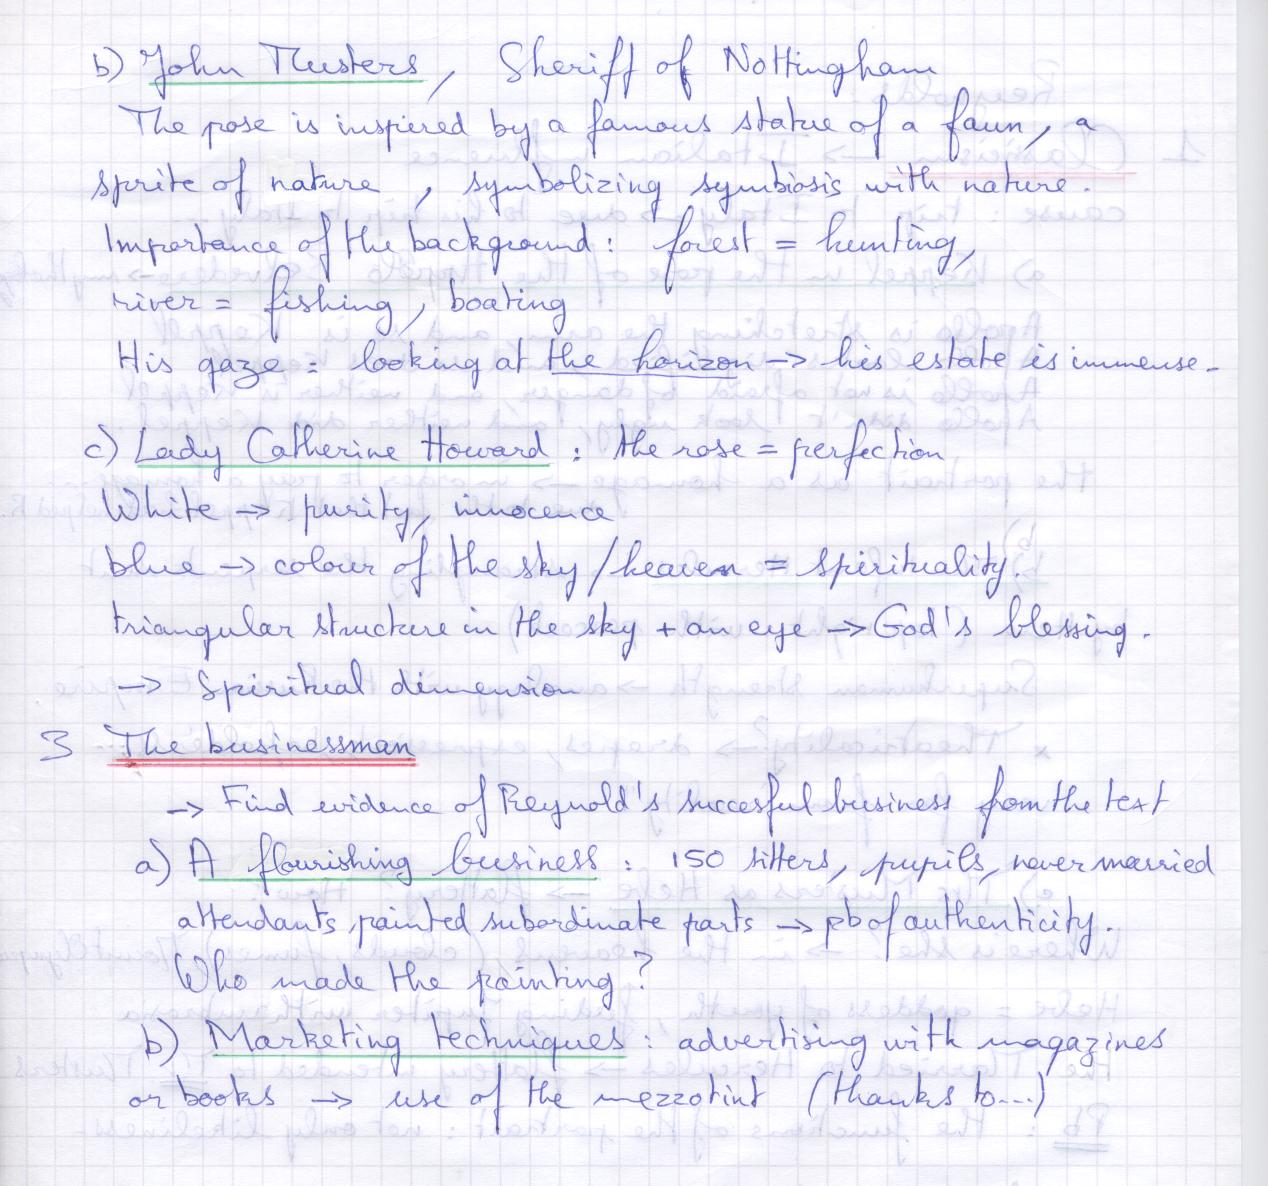 b) John Musters, Sheriff of Nottingham
The pose is inspired by a famous statue of a faun, a
sprite of nature, symbolizing symbiosis with nature.
Importance of the background: forest = hunting,
river = fishing, boating
His gaze: looking at the horizon -> his estate is immense.
c) Lady Catherine Howard: the rose = perfection
White -> purity, innocence
blue -> colour of the sky/heaven = spirituality.
triangular structure in the sky + an eye -> God's blessing.
-> Spiritual dimension
3 The businessman
-> Find evidence of Reynold's succesful business from the text
a) A flourishing business: 150 sitters, pupils, never married
attendants painted subordinate parts -> pb of authenticity.
Who made the painting?
b) Marketing techniques: advertising with magazines
or books -> use of the mezzotint (thanks to...)